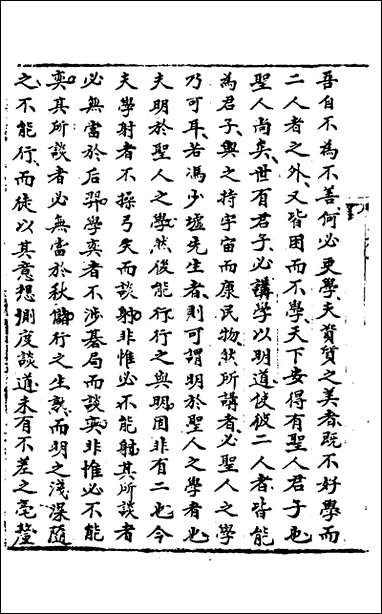 吾自不為不善何必更學夫資質之美者既不好學而
二人者之外又皆困而不學天下安得有聖人君子也
聖人尚矣世有君子必講學以明道使彼二人者皆能
為君子與之持宇宙而康民物然所講者必聖人之學
乃可耳若馮少墟先生者則可謂明於聖人之學者也
夫明於聖人之學然後能行行之與明固非有二也今
夫學射者不操弓矢而談射非惟必不能射其所談者
必無當於后羿學奕者不涉棊局而談奕非惟必不能
奕其所談者必無當於秋儲行之生熟而明之淺深隨
之不能行而徒以其意想測度談道未有不差之毫釐